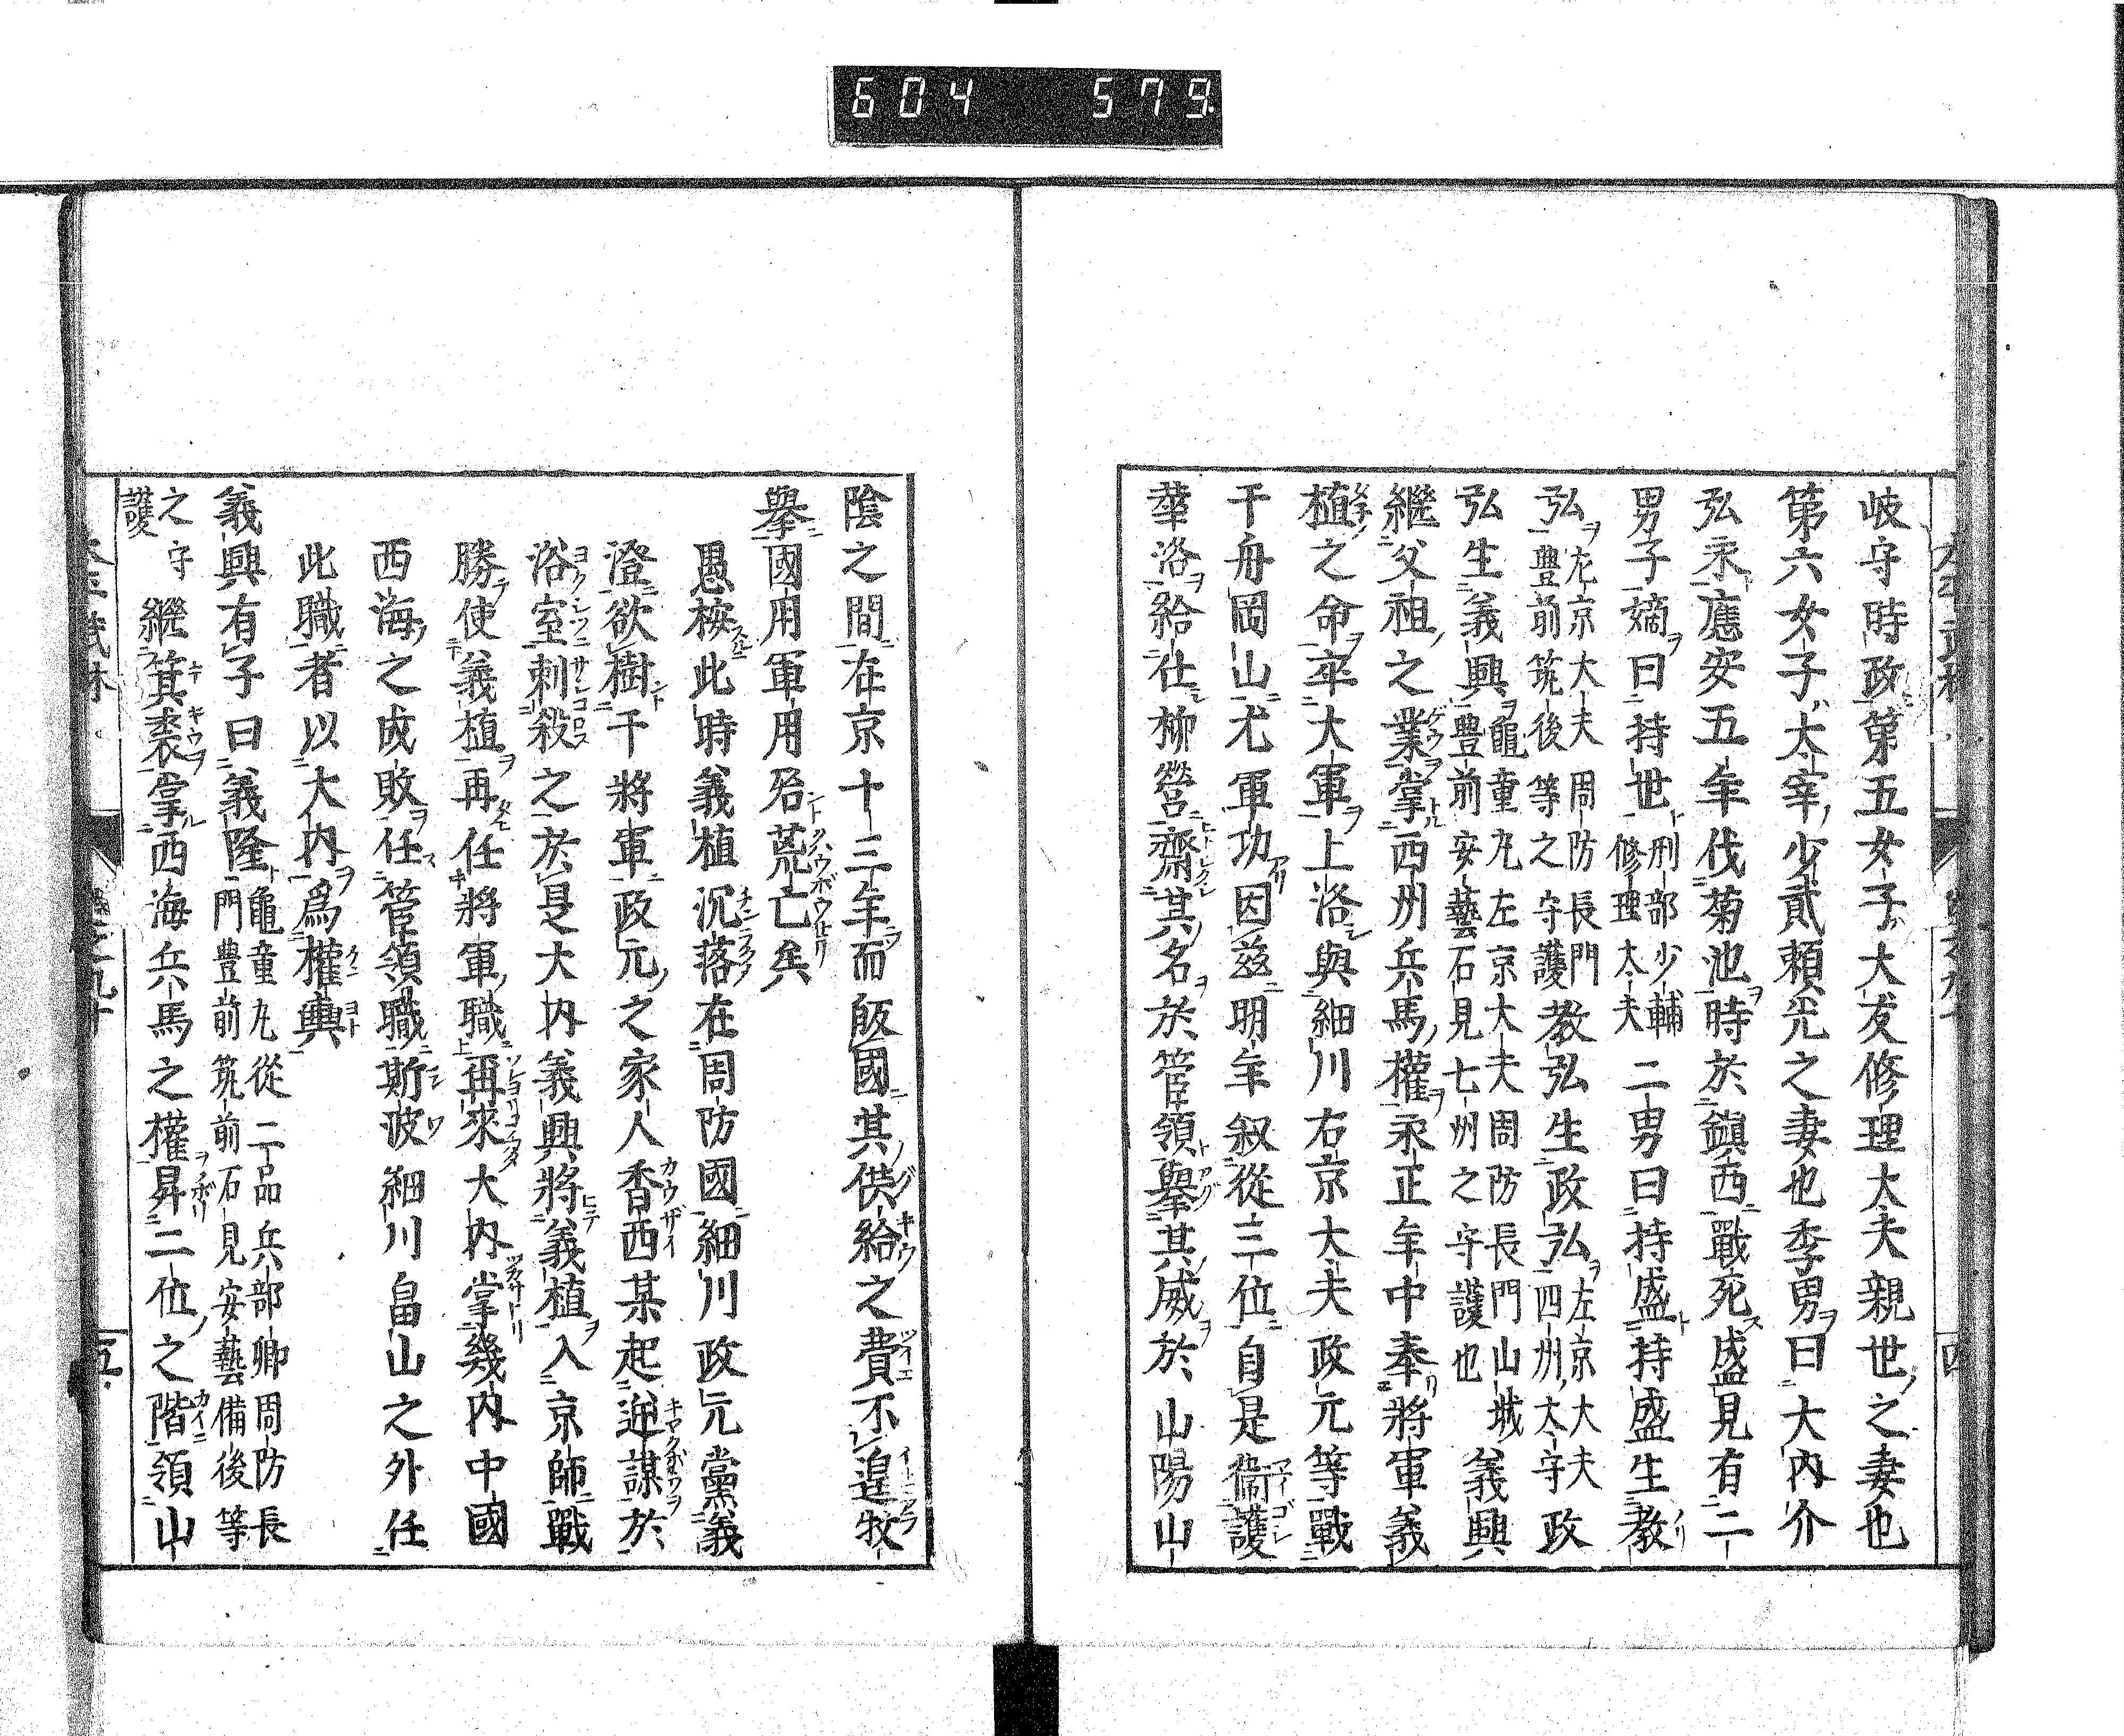 604 579
岐守時政第五女子大友修理太夫親世之妻也
第六女子太宰少貳頼光之妻也季男曰大内介
弘永應安五年伐菊池時於鎭西戰死盛見有二
男子嫡曰持世刑部少輔修理太夫二男曰持盛持盛生教
弘左京大夫周防長門豊前筑後等之守護教弘生政弘左京大夫四州太守政
弘生義興龜童丸左京大夫周防長門山城豊前安藝石見七州之守護也義興
繼父祖之業掌西州兵馬權永正年中奉將軍義
植之命卒大軍上洛與細川右京大夫政元等戰
于舟岡山尤軍功因茲明年叙從三位自是衞護
華洛給仕柳營齋其名於管領擧其威於山陽山
陰之間在京十三年而皈國其供給之費不遑枚
擧國用軍用殆荒亡矣
愚按此時義植沉落在周防國細川政元黨義
澄欲樹于將軍政元之家人香西某起逆謀於
浴室刺殺之於是大内義興將義植入京師戰
勝使義植再任將軍職再來大内掌幾内中國
西海之成敗任管領職斯波細川畠山之外任
此職者以大内爲權輿
義興有子曰義隆龜童丸從二品兵部卿周防長門豊前筑前石見安藝備後等
之守護繼箕裘掌西海兵馬之權昇二位之階領山